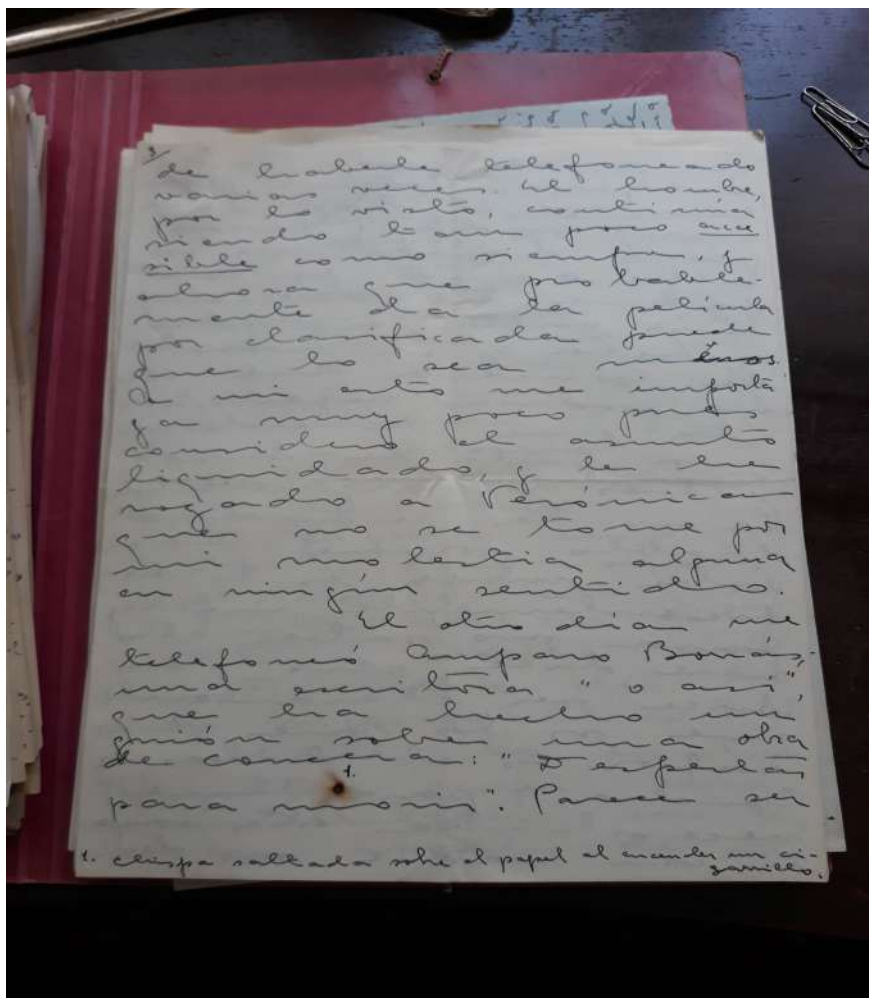 3
de haberle telefoneado
varias veces. El hombre,
por lo visto, continúa
siendo tan poco acce
sible como siempre, y
ahora que probable-
mente da la película
por clasificada puede
que lo sea menos.
A mi esto me importa
ya muy poco pues
considero el asunto
liquidado, y le he
rogado a Verónica
que no se tome por
mi molestia alguna
en ningún sentido.
El otro día me
telefoneó Amparo Bonás,
una escritora "o así",
que ha hecho un
guión sobre una obra
de concha: "Despertar
1.
para morir". Parece ser
1. chispa saltada sobre el papel al encender un ci-
garrillo.